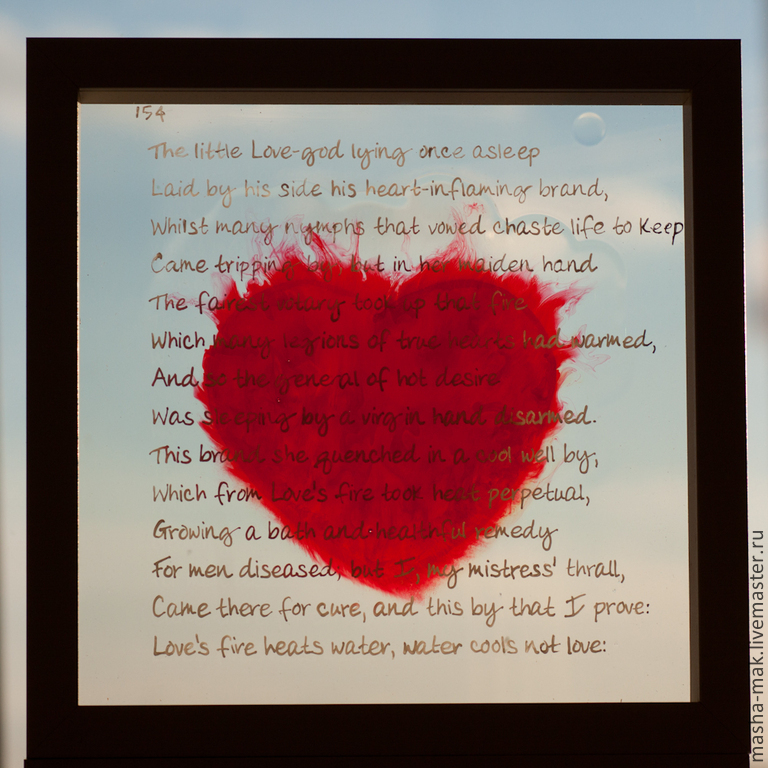 154
The little Love-god lying once asleep
Laid by his side his heart-inflaming brand,
Whilst many nymphs that vowed chaste life to keep
Came tripping by, but in her maiden hand
The fairest votary took up that fire
Which many legions of true hearts had warmed,
And so the general of hot desire
Was sleeping by a virgin hand disarmed.
This brand she quenched in a cool well by,
Which from Love's fire took heat perpetual,
Growing a bath and healthful remedy
For men diseased; but I, my mistress' thrall,
Came there for cure, and this by that I prove:
Love's fire heats water, water cools not love:
masha-mak.livemaster.ru